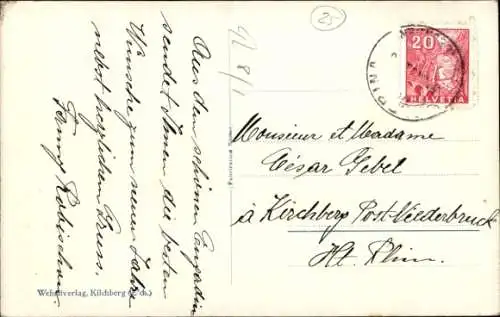 Aus dem schönen Engadin
sendet Ihnen die besten
Wünsche zum neuen Jahr
nebst herzlichem Gruss.
Fanny Robischon
25
92 8/1
20
HELVETIA
Monsieur et Madame
César Gebel
à Kirchberg Post Niederbruck
Ht. Rhin.
Wehrliverlag, Kilchberg (Zch.)